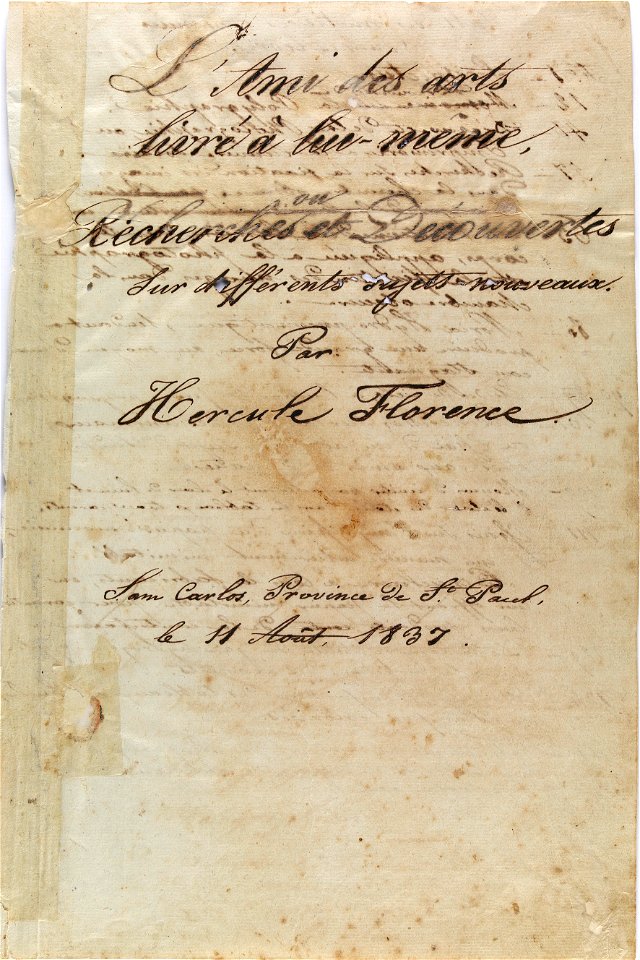 L'Ami des arts
livré a lui-même,
ou
Recherches et Découvertes
sur différents sujets nouveaux.
Par
Hercule Florence.
Sam Carlos, Province de St. Paul,
le 11 Août, 1837.